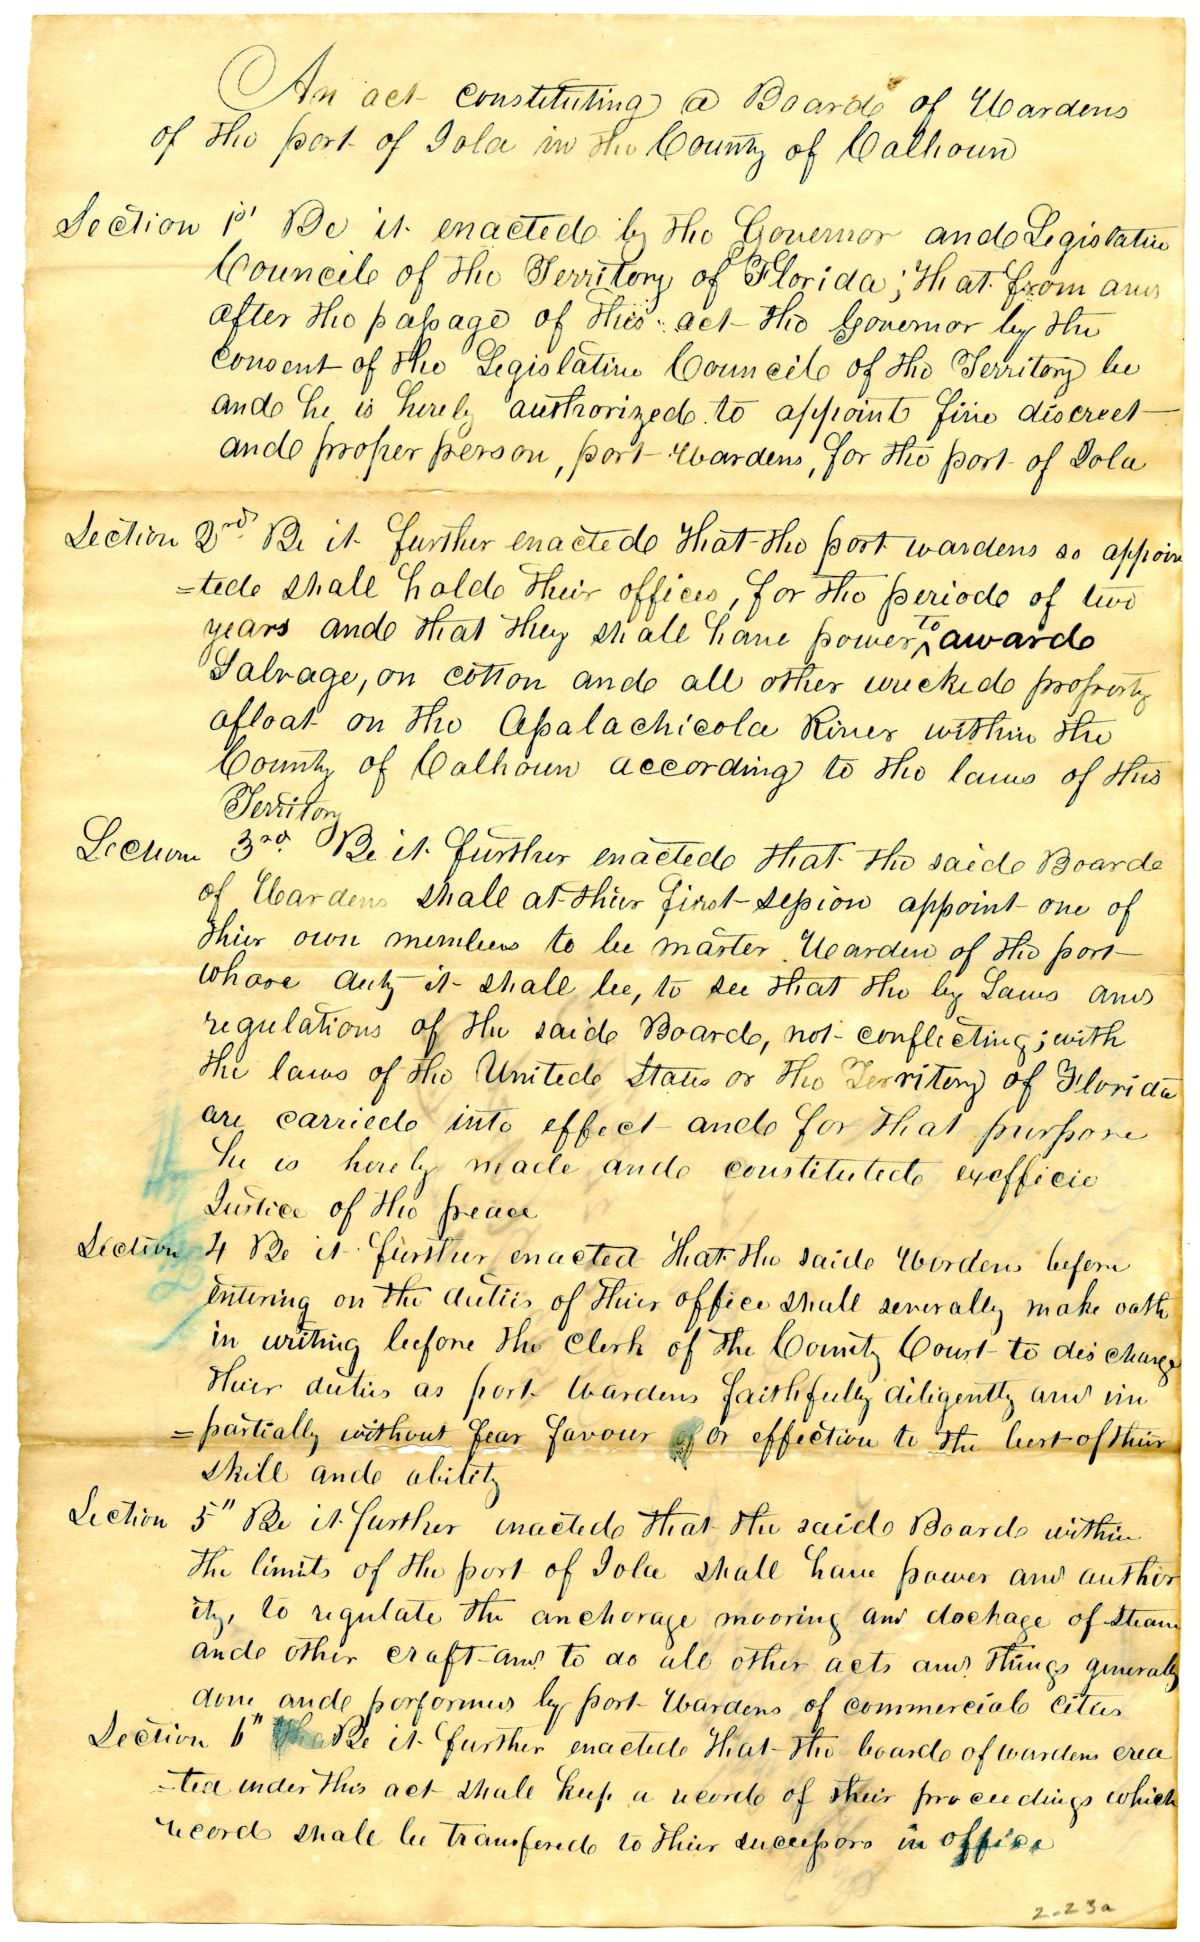 An act constituting a Board of Wardens
of the port of Iola in the County of Calhoun
Section 1st Be it enacted by the Governor and Legislative
Council of the Territory of Florida; that from and
after the passage of this act the Governor by the
consent of the Legislative Council of the Territory be
and he is hereby authorized to appoint five discreet
and proper person, port Wardens, for the port of Iola
Section 2nd Be it further enacted that the port wardens so appoin
=ted shall hold their offices, for the period of two
years and that they shall have power to award
Salvage, on cotton and all other wrecked property
afloat on the Apalachicola River within the
County of Calhoun according to the laws of this
Territory
Section 3rd Be it further enacted that the said Board
of Wardens shall at their first session appoint one of
their own members to be master Warden of the port
whose duty it shall be, to see that the by Laws and
regulations of the said Board, not conflecting; with
the laws of the United States or the Territory of Florida
are carried into effect and for that purpose
he is hereby made and constituted exofficio
Justice of the peace
Section 4 Be it further enacted that the said Wardens before
entering on the duties of their office shall severally make oath
in writing before the Clerk of the County Court to discharge
their duties as port Wardens faithfully diligently and im
=partially without fear favour or effection to the best of their
skill and ability
Section 5" Be it further enacted that the said Board within
the limits of the port of Iola shall have power and author
ity, to regulate the anchorage mooring and dockage of steam
and other craft and to do all other acts and things generally
done and performed by port Wardens of commercial cities
Section 6" Be it further enacted that the board of wardens crea
=ted under this act shall keep a record of their proceedings which
record shall be transfered to their successors in office
2-23a